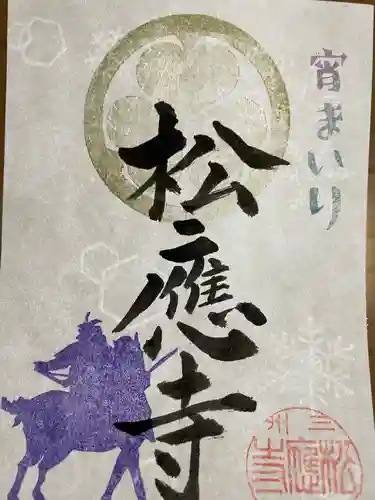 宵まいり
松應寺
三州
松應寺